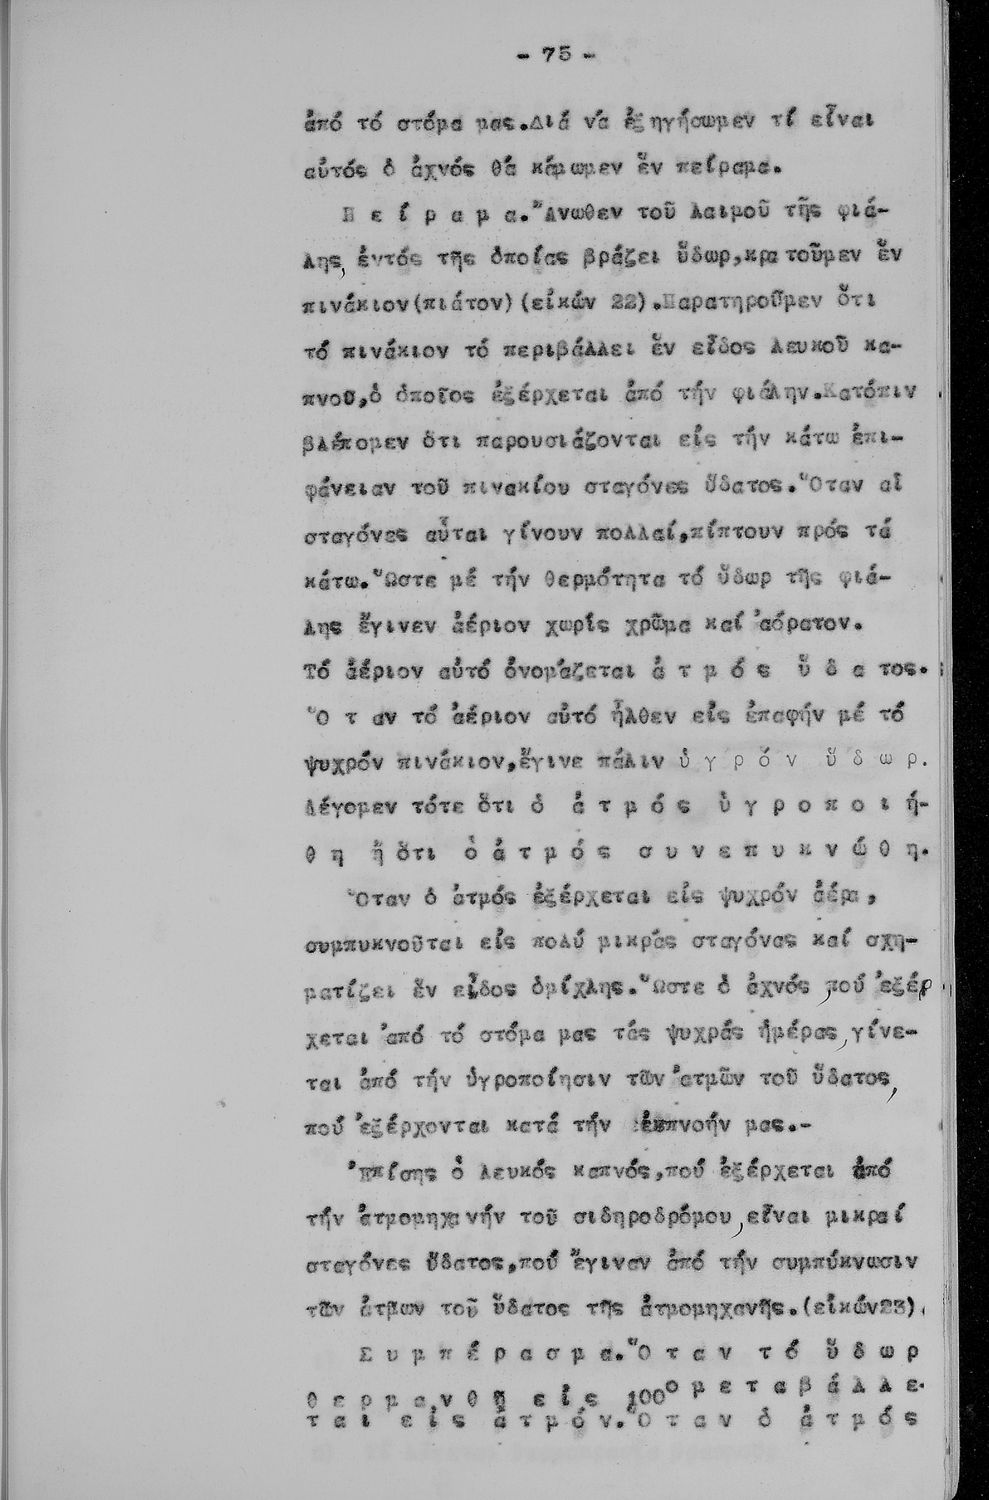 - 75 -
ἀπό τό στόμα μας.Διά νά ἐξηγήσωμεν τί εἶναι
αὐτός ὁ ἀχνός θά κάμωμεν ἕν πείραμα.
Π ε ί ρ α μ α.Ἄνωθεν τοῦ λαιμοῦ τῆς φιά-
λης, ἐντός τῆς ὁποίας βράζει ὕδωρ,κρατοῦμεν ἕν
πινάκιον(πιάτον)(εἰκών 22).Παρατηροῦμεν ὅτι
τό πινάκιον τό περιβάλλει ἕν εἶδος λευκοῦ κα-
πνοῦ,ὁ ὁποῖος ἐξέρχεται ἀπό τήν φιάλην.Κατόπιν
βλέπομεν ὅτι παρουσιάζονται εἰς τήν κάτω ἐπι-
φάνειαν τοῦ πινακίου σταγόνες ὕδατος.Ὅταν αἱ
σταγόνες αὗται γίνουν πολλαί,πίπτουν πρός τά
κάτω.Ὥστε μέ τήν θερμότητα τό ὕδωρ τῆς φιά-
λης ἔγινεν ἀέριον χωρίς χρῶμα καί ἀόρατον.
Τό ἀέριον αὐτό ὀνομάζεται ἀ τ μ ό ς ὕ δ α τος.
Ὅ τ αν τό ἀέριον αὐτό ἦλθεν εἰς ἐπαφήν μέ τό
ψυχρόν πινάκιον,ἔγινε πάλιν ὑ γ ρ ό ν ὕ δ ω ρ.
Λέγομεν τότε ὅτι ὁ ἀ τ μ ό ς ὑ γ ρ ο π ο ι ή-
θ η ἤ ὅτι ὁ ἀ τ μ ό ς σ υ ν ε π υ κ ν ώ θ η.
Ὅταν ὁ ἀτμός ἐξέρχεται εἰς ψυχρόν ἀέρα,
συμπυκνοῦται εἰς πολύ μικράς σταγόνας καί σχη-
ματίζει ἕν εἶδος ὁμίχλης.Ὥστε ὁ ἀχνός, πού ἐξέρ
χεται ἀπό τό στόμα μας τάς ψυχράς ἡμέρας, γίνε-
ται ἀπό τήν ὑγροποίησιν τῶν ἀτμῶν τοῦ ὕδατος,
πού ἐξέρχονται κατά τήν ἐκπνοήν μας.-
Ἐπίσης ὁ λευκός καπνός,πού ἐξέρχεται ἀπό
τήν ἀτμομηχανήν τοῦ σιδηροδρόμου, εἶναι μικραί
σταγόνες ὕδατος,πού ἔγιναν ἀπό τήν συμπύκνωσιν
τῶν ἀτμων τοῦ ὕδατος τῆς ἀτμομηχανῆς.(εἰκών23).
Σ υ μ π έ ρ α σ μ α.Ὅ τ α ν τ ό ὕ δ ω ρ
θ ε ρ μ α ν θ ῇ ε ἰ ς 100° μ ε τ α β ά λ λ ε-
τ α ι ε ἰ ς ἀ τ μ ό ν.Ὅ τ α ν ὁ ἀ τ μ ό ς